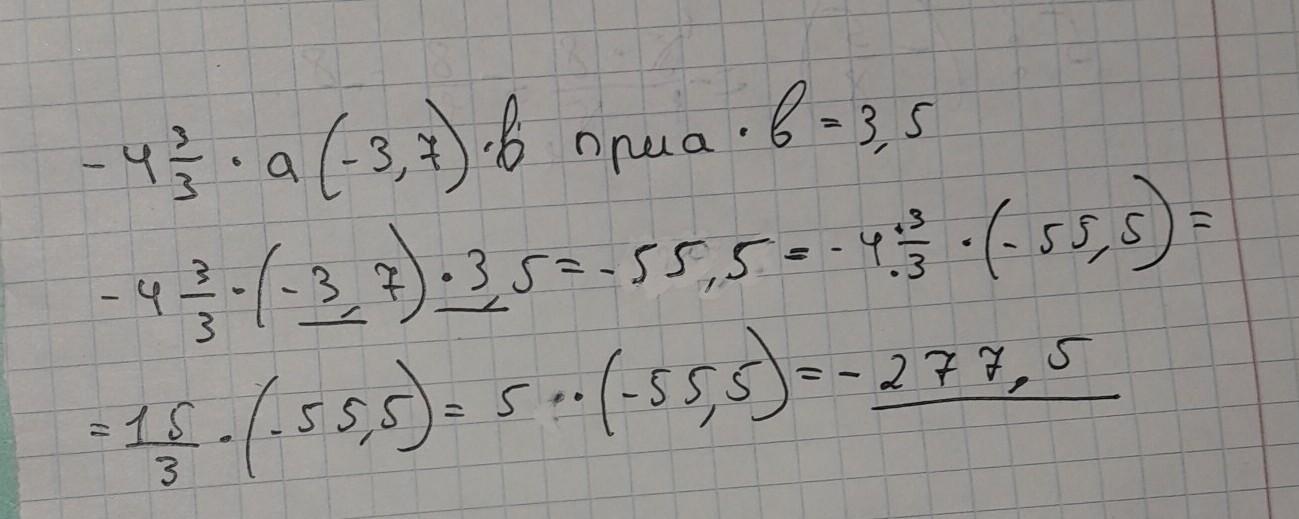 -4 3/3 · a (-3,7) · в при a · в = 3,5
-4 3/3 · (-3,7) · 3,5 = -55,5 = -4 ·3/·3 · (-55,5) =
= 15/3 · (-55,5) = 5 ·· (-55,5) = -277,5